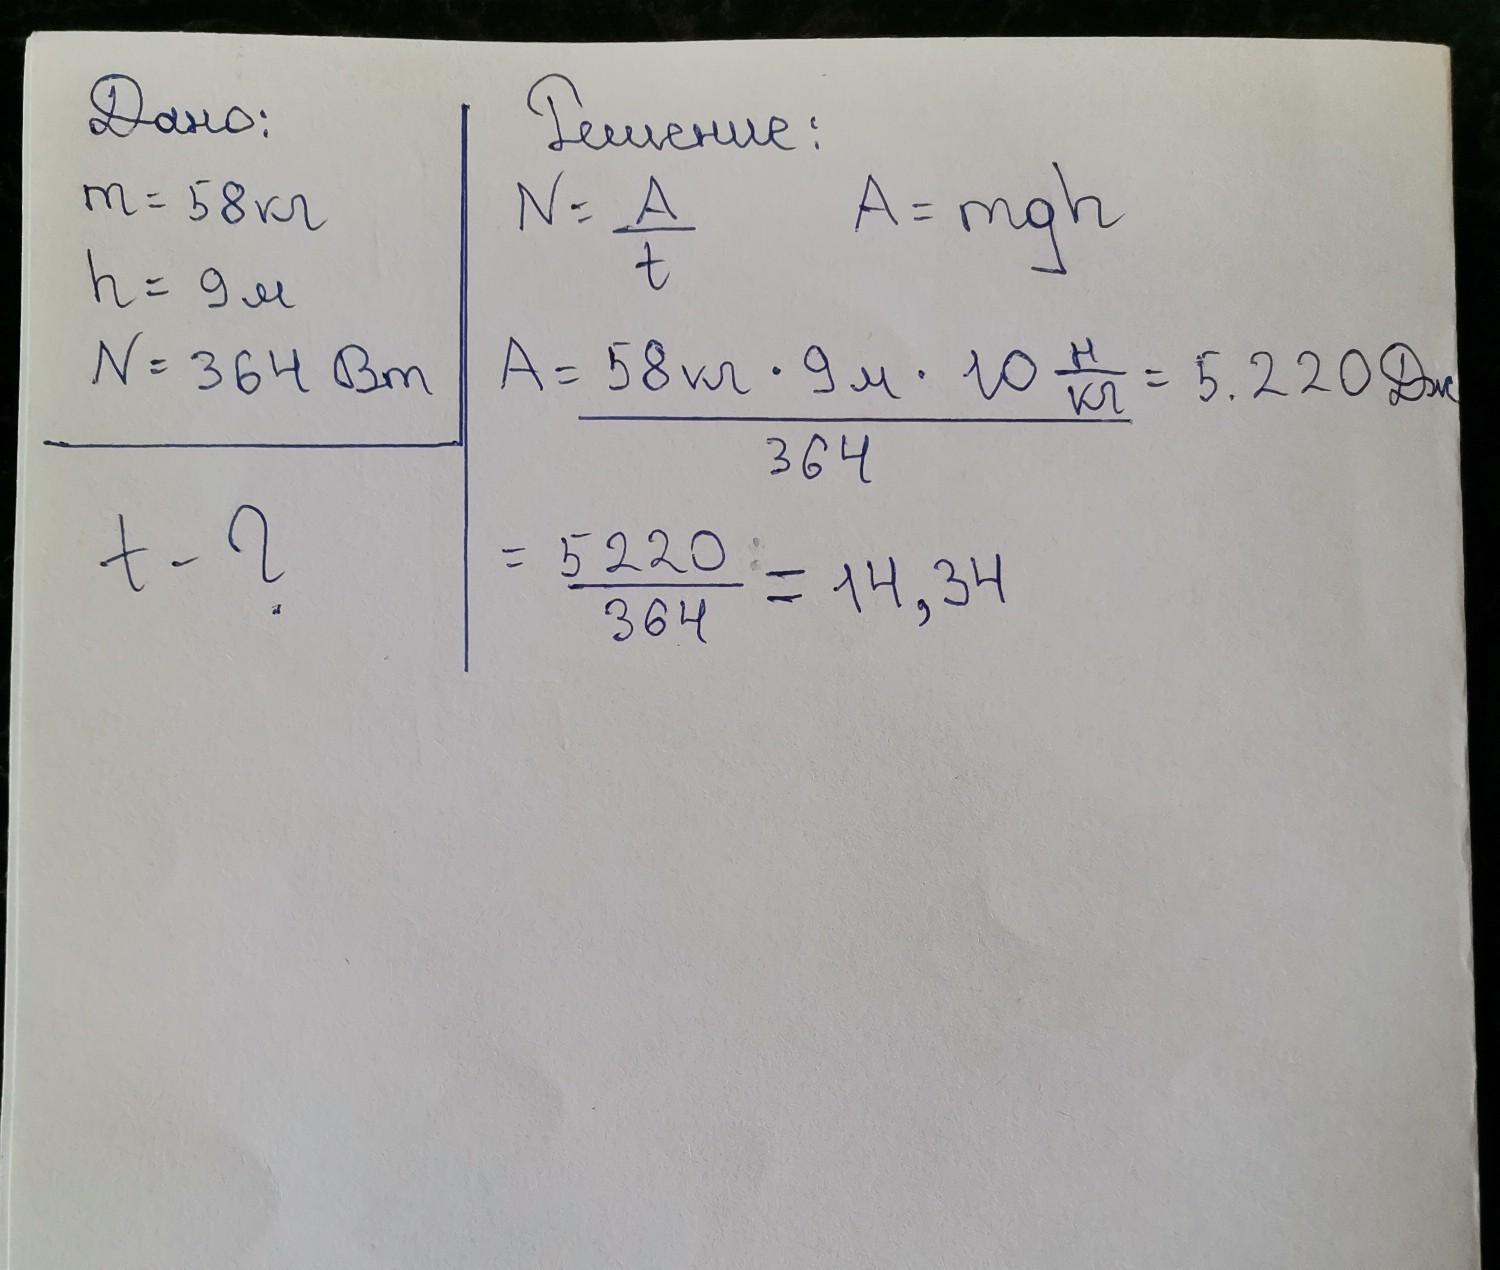 Дано:
m = 58 кг
h = 9 м
N = 364 Вт
t - ?
Решение:
N = A / t A = mgh
A = 58 кг · 9 м · 10 Н/кг / 364 = 5.220 Дж
= 5220 / 364 = 14,34